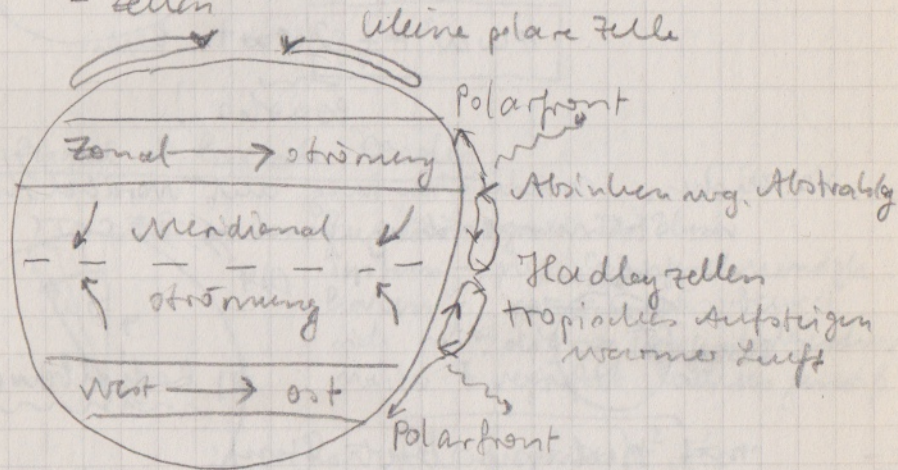 - Zellen
kleine polare Zelle
Polarfront
Zonal → strömung
Absinken wg. Abstrahlg
Meridional
strömung
Hadleyzellen
tropisches Aufsteigen
warmer Luft
West → ost
Polarfront